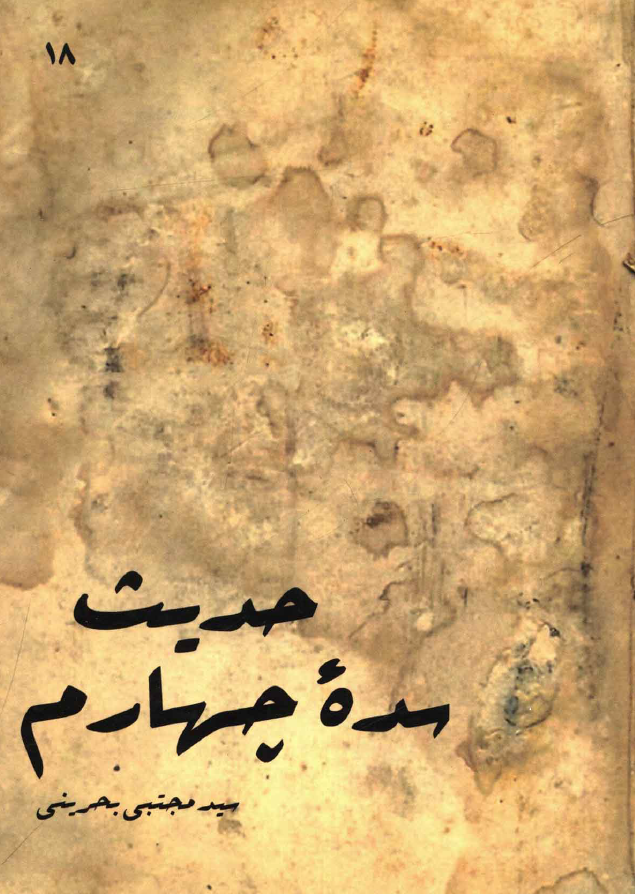 ۱۸
حدیث
سدهٔ چهارم
سید مجتبی بحرینی